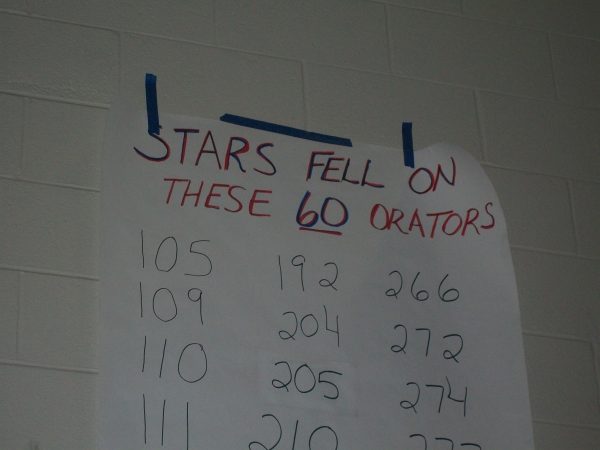 STARS FELL ON
THESE 60 ORATORS
105 192 266
109 204 272
110 205 274
111 210 277